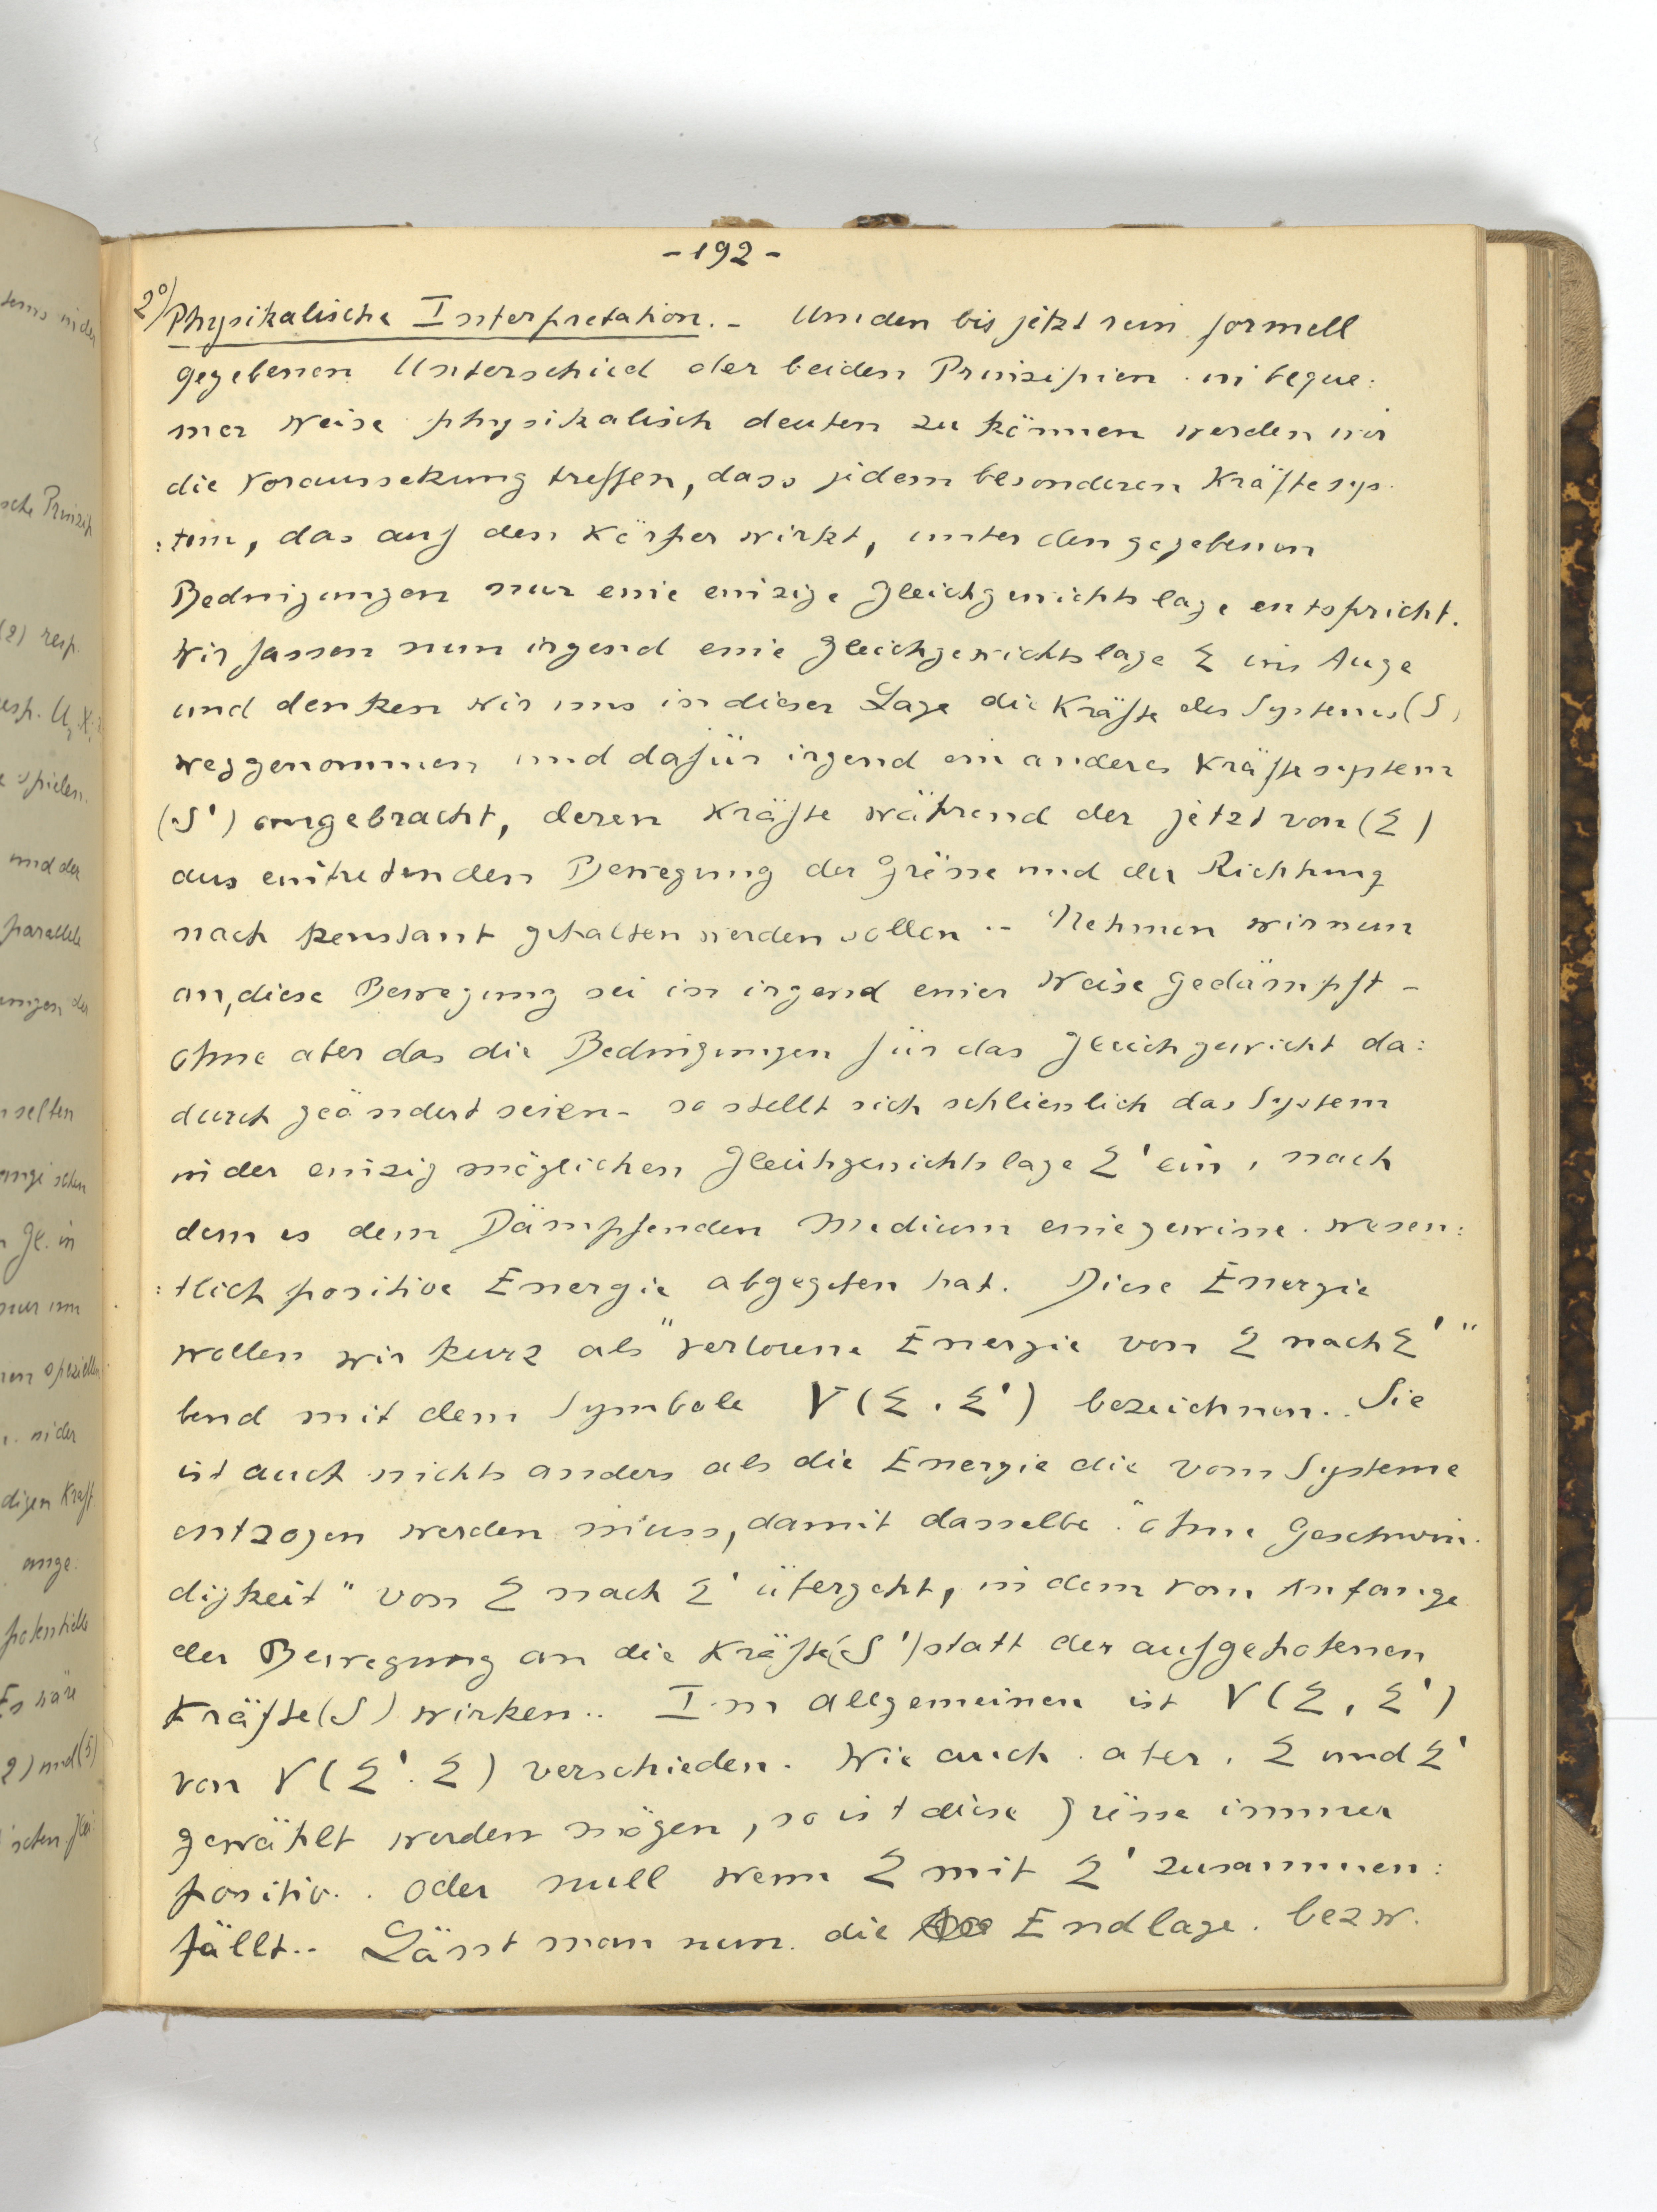 -192-
2°) Physikalische Interpretation.- Um den bis jetzt rein formell
gegebenen Unterschied der beiden Prinzipien in beque:
mer Weise physikalisch deuten zu können werden wir
die Voraussetzung treffen, dass jedem besonderen Kräftesys-
:tem, das auf den Körper wirkt, unter den gegebenen
Bedingungen nur eine einzige Gleichgewichtslage entspricht.
Wir fassen nun irgend eine Gleichgewichtslage Σ ins Auge
und denken wir uns in dieser Lage die Kräfte des Systemes (S)
weggenommen und dafür irgend ein anderes Kräftesystem
(S') angebracht, deren Kräfte während der jetzt von (Σ)
aus eintretenden Bewegung der Grösse und der Richtung
nach konstant gehalten werden sollen.- Nehmen wir nun
an, diese Bewegung sei in irgend einer Weise gedämpft -
ohne aber das die Bedingungen für das Gleichgewicht da:
durch geändert seien- so stellt sich schliesslich das System
in der einzig möglichen Gleichgewichtslage Σ' ein, nach
dem es dem Dämpfenden Medium eine gewisse wesen:
:tlich positive Energie abgegeben hat. Diese Energie
wollen wir kurz als "verlorene Energie von Σ nach Σ'"
bend mit dem Symbole V(Σ.Σ') bezeichnen.. Sie
ist auch nichts anders als die Energie die vom Systeme
entzogen werden muss, damit dasselbe "ohne Geschwin-
digkeit" von Σ nach Σ' übergeht, in dem vom Anfange
der Bewegung an die Kräfte (S') statt der aufgehobenen
Kräfte (S) wirken.. Im allgemeinen ist V(Σ, Σ')
von V(Σ'.Σ) verschieden. Wie auch aber, Σ und Σ'
gewählt werden mögen, so ist diese Grösse immer
positiv.. oder null wenn Σ mit Σ' zusammen:
fällt.. Lässt man nun die Endlage. bezw.